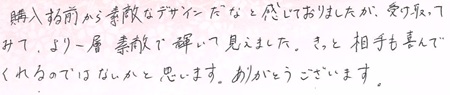 購入する前から素敵なデザインだなと感じておりましたが、受け取って
みて、より一層 素敵で輝いて見えました。きっと 相手も喜んで
くれるのではないかと思います。ありがとうございます。